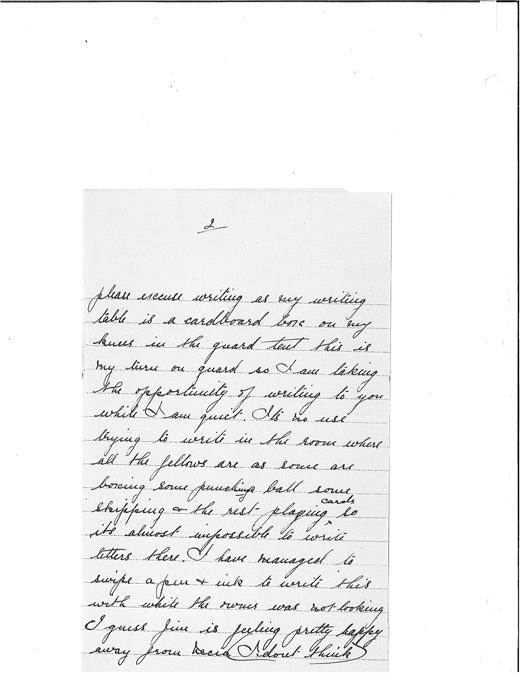 2
please excuse writing as my writing
table is a cardboard box on my
knees in the guard tent this is
my turn on guard so I am taking
the opportunity of writing to you
while I am quiet. Its no use
trying to write in the room where
all the fellows are as some are
boxing some punching ball some
skipping & the rest playing cards so
its almost impossible to write
letters there. I have managed to
swipe a pen & ink to write this
with while the owner was not looking
I guess Jim is feeling pretty happy
away from (I dont think)